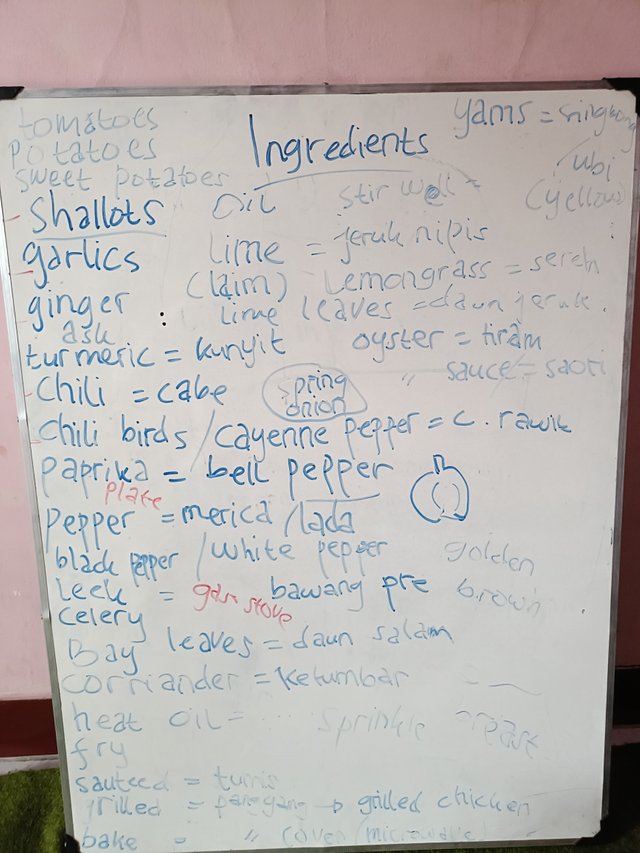 tomatoes
potatoes
sweet potatoes
Ingredients
yams = singkong
ubi
(yellow)
Shallots
oil
stir well
garlics
lime = jeruk nipis
(laim)
Lemongrass = sereh
ginger :
lime leaves = daun jeruk.
ask
turmeric = kunyit
oyster = tiram
" sauce = saori
Chili = cabe
spring
onion
Chili birds / cayenne pepper = c. rawit
paprika = bell pepper
plate
pepper = merica / lada
black pepper / white pepper
golden
brown
Leek = bawang pre
gas stove
celery
Bay leaves = daun salam
corriander = ketumbar
heat oil = ...
sprinkle
fry
sauteed = tumis
grilled = panggang → grilled chicken
bake = " (oven/microwave)